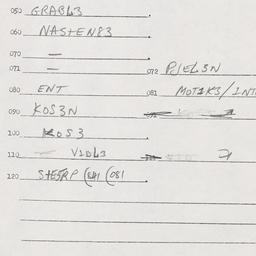 050 GRABL3
060 NASTEN83
070 —
071 — 072 PJEL3N
080 ENT 081 MOT1K3/INT
090 KOS3N
100 KOS3
110 V1DL3
120 (081